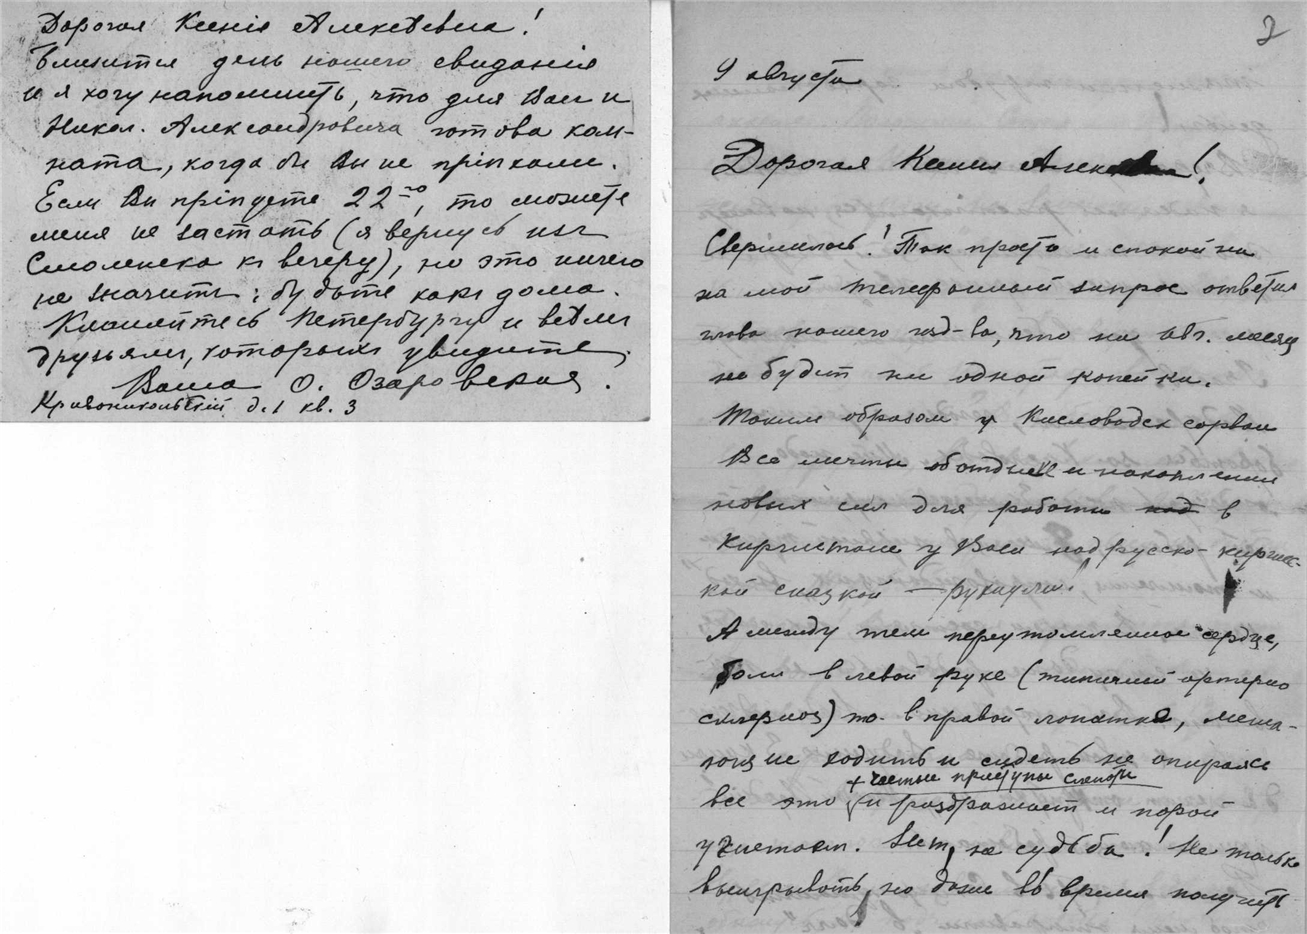 Дорогая Ксенія Алексѣевна!
Близится день нашего свиданія
и я хочу напомнить, что для Вас и
Никол. Александровича готова ком-
ната, когда бы Вы не пріѣхали.
Если Вы пріѣдете 22-го, то можете
меня не застать (я вернусь изъ
Смоленска къ вечеру), но это ничего
не значитъ: будьте какъ дома.
Кланяйтесь Петербургу и всѣмъ
друзьямъ, которыхъ увидите.
Ваша О. Озаровская.
Кривоникольскій д. 1 кв. 3
2
9 августа
Дорогая Ксения !
Свершилось! Так просто и спокойно
на мой телефонный запрос ответил
глава нашего изд-ва, что на авг. месяц
не будет ни одной копейки.
Таким образом у Кисловодск сорван
Все мечты об отдыхе и накоплении
новых сил для работы над в
Киргистане у Васи над русско-киргиз-
кой сказкой — рухнули!
А между тем переутомленное сердце,
боли в левой руке (типичный артерио
склероз) то в правой лопатке, меша-
ющие ходить и сидеть не опираясь
+ частые приступы слепоты
все это и раздражает и порой
угнетает. Нет, не судьба! Не только
выигрывать, но даже во время получить